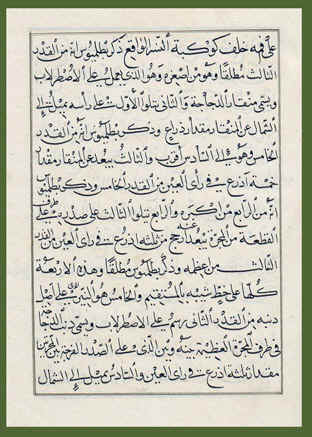 على فمه خلف كوكبة النسر الواقع ذكر بطلميوس انه من القدر
الثالث مطلقا وهو من اصغره وهو الذى يعمل به على الاصطرلاب
ويسمى منقار الدجاجة والثانى يتلو الاول على رأسه يميل الى
الشمال عن المنقار مقدار ذراع وذكر بطلميوس انه من القدر
الخامس وهو الى السادس اقرب والثالث يبعد عن المنقار مقدار
خمسة اذرع فى رأى العين من القدر الخامس وذكر بطلميوس
انه من الرابع من اكبره والرابع يتلو الثالث على صدره على طرف
القطعة من المجرة يبعد عنه ارجح من ثلثة اذرع فى رأى العين من القدر
الثالث من اعظمه وذكر بطلميوس مطلقا وهذه الاربعة
كلها على خط شبيه بالمستقيم والخامس هو النير الذى على اصل
ذنبه من القدر الثانى يرسم على الاصطرلاب ويسمى ذنب الدجاجة
فى طرف المجرة العظيمة بينه وبين الذى على الصدر الفرجة بين المجرتين
مقدار ثلثة اذرع فى رأى العين والسادس يميل الى الشمال